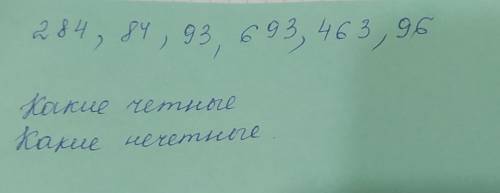 284, 84, 93, 693, 463, 96
Какие четные
Какие нечетные.